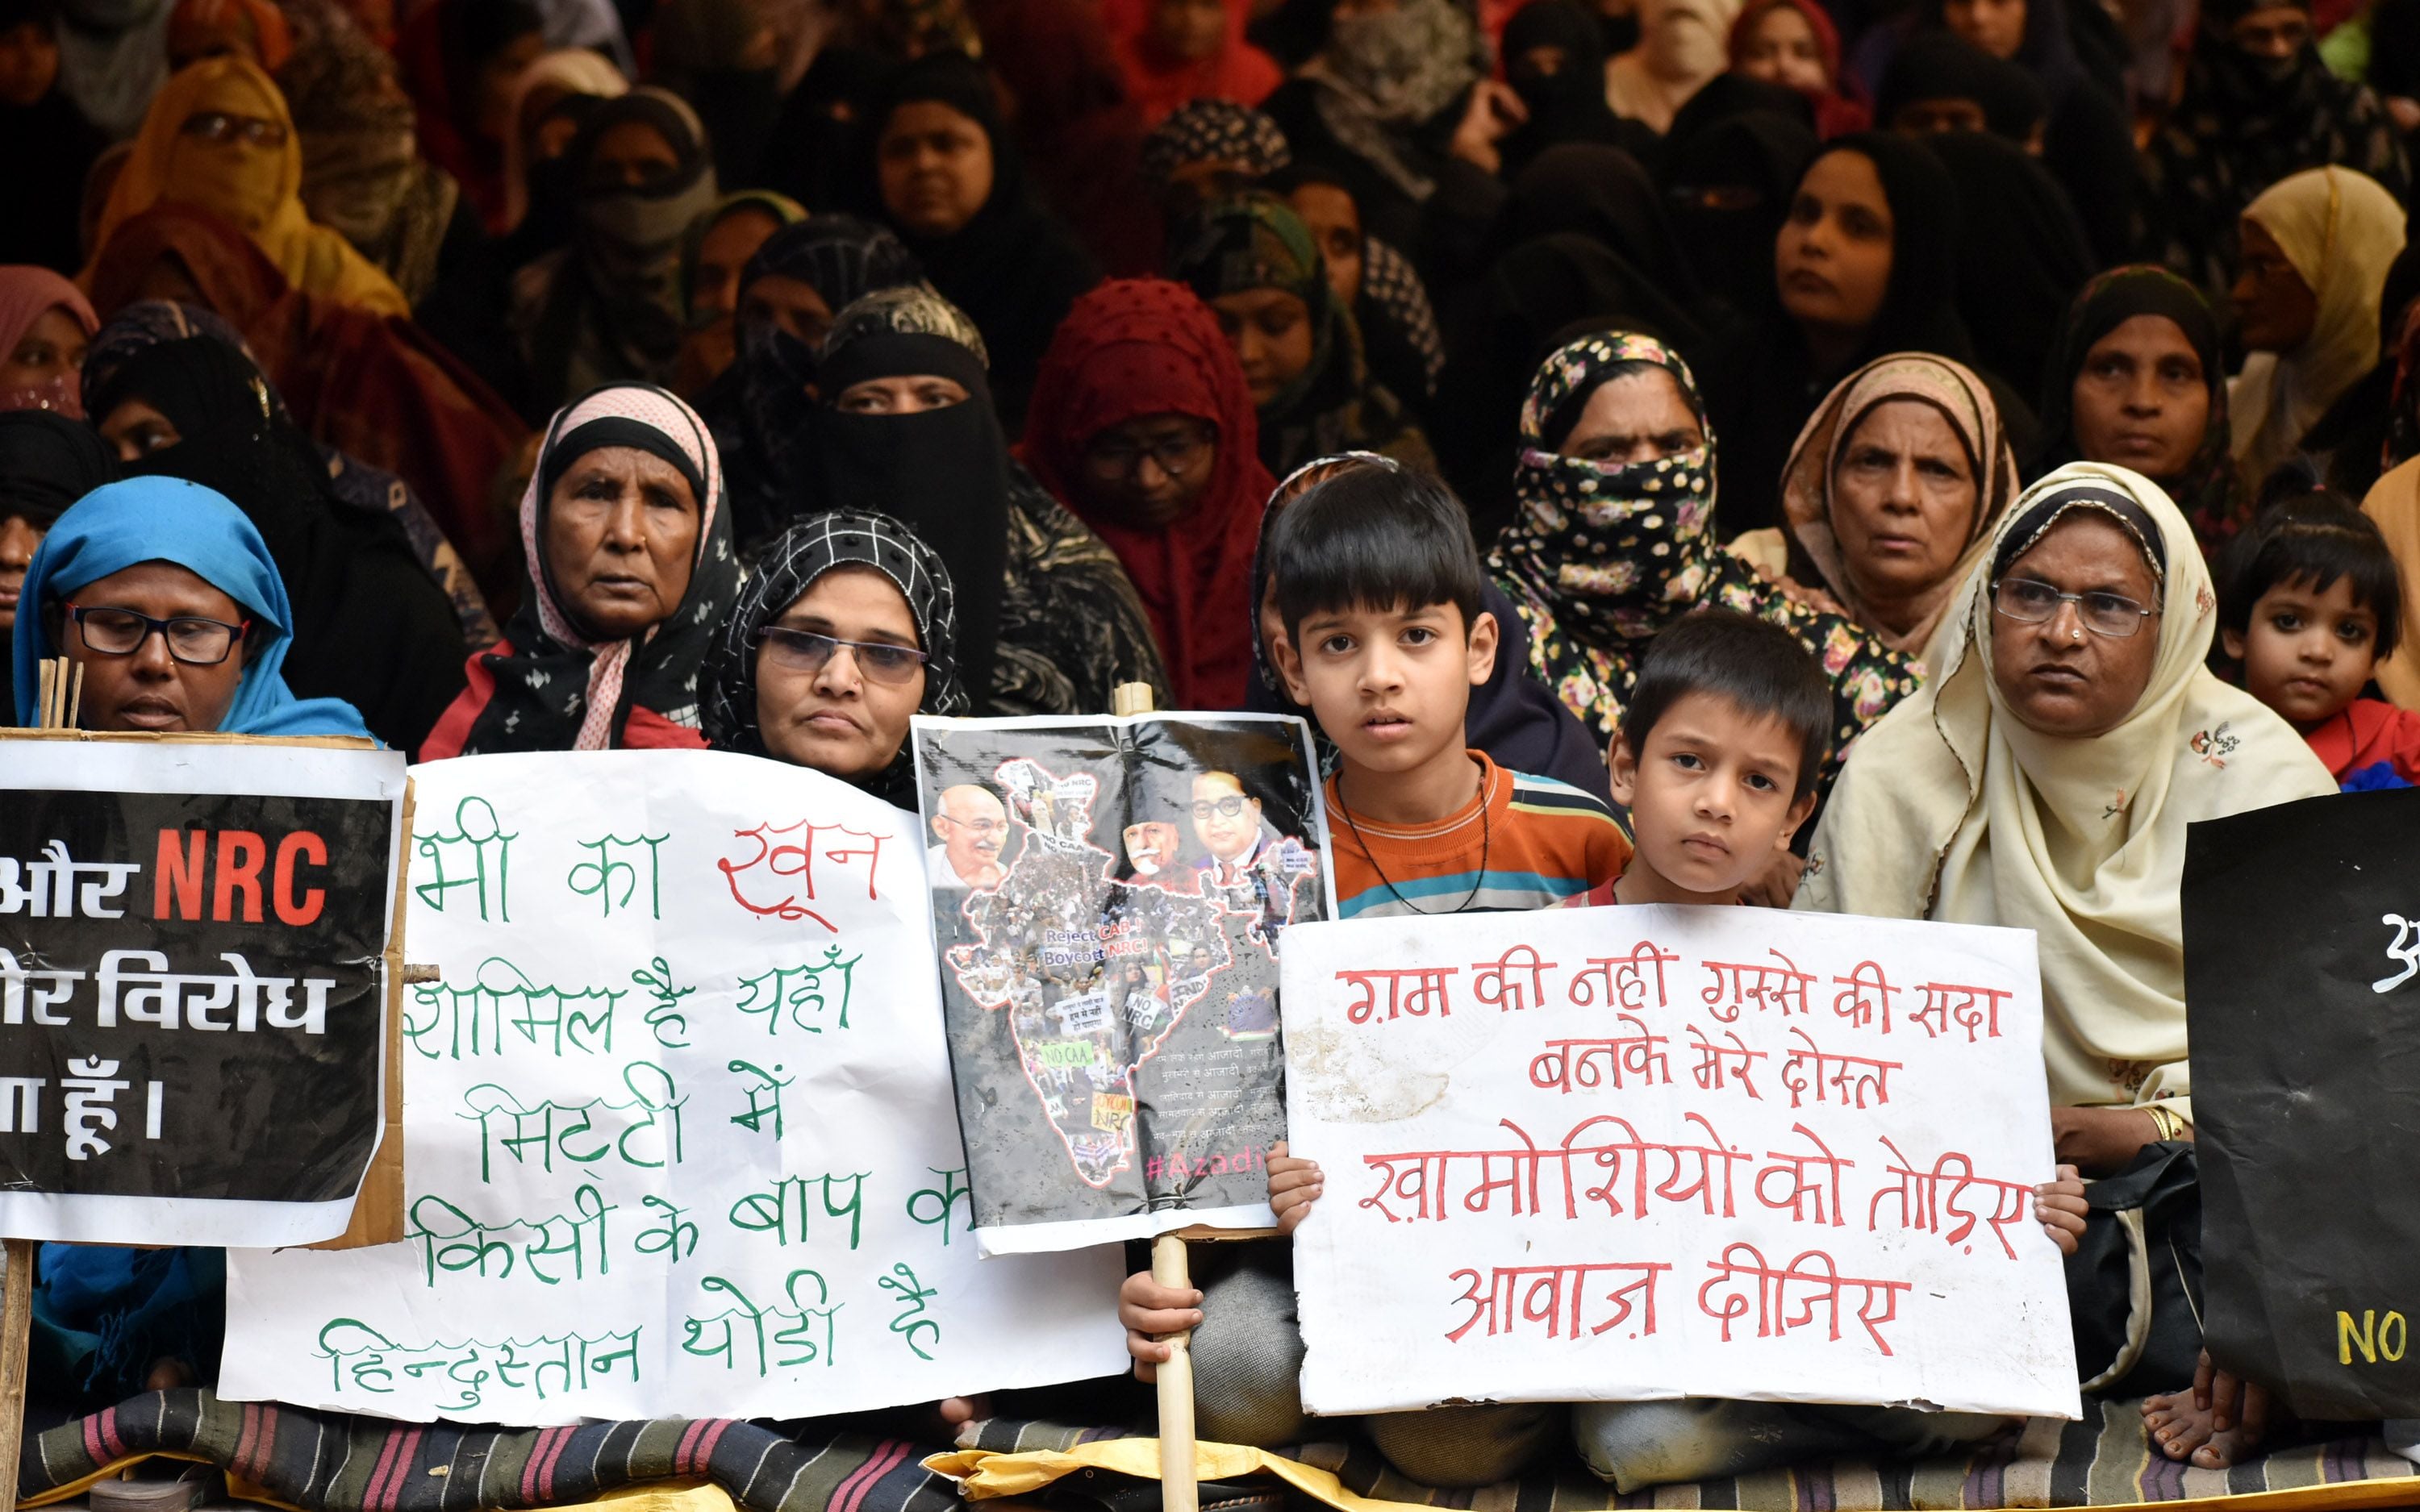 और NRC
विरोध
हूँ।
भी का खून
शामिल है यहाँ
मिट्टी में
किसी के बाप
हिन्दुस्तान थोड़ी है
NO NRC
NO CAA
Reject CAB!
Boycott NRC!
NO
NRC
NO CAA
BOYCOTT
NRC
#Azadi
ग़म की नहीं गुस्से की सदा
बनके मेरे दोस्त
ख़ामोशियों को तोड़िए
आवाज़ दीजिए
NO